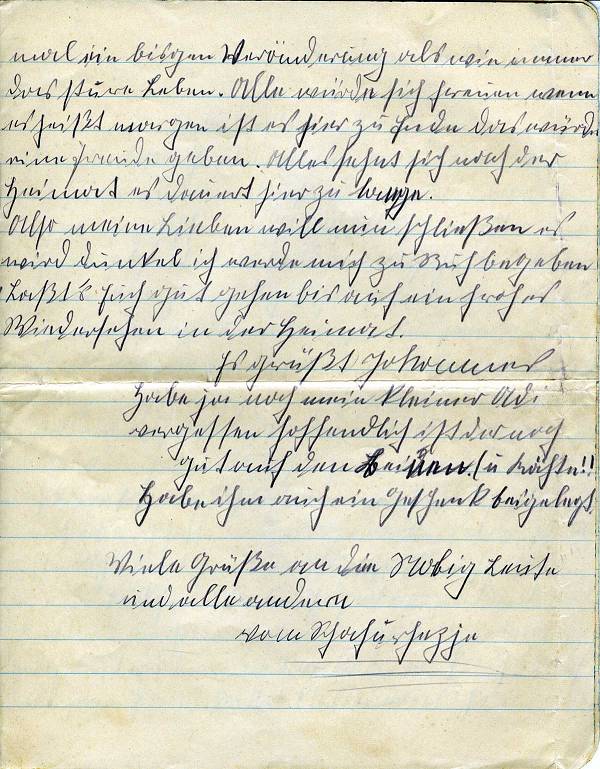 mal ein bisgen Veränderung als wie immer
das sture Leben. Alle würde sich freuen wenn
es heißt morgen ist es hier zu Ende das würde
eine Freude geben. Alles sehnt sich nach der
Heimat es dauert hier zu lange.
Also meine Lieben will nun schließen es
wird dunkel ich werde mich zu Ruh begeben
Laßt's Euch gut gehen bis auf ein frohes
Wiedersehen in der Heimat.
Es grüßt Johannes
Habe ja noch mein kleiner Adi
vergessen hoffendlich ist der noch
gut auf den Beinen (u
Habe ihm auch ein Geschenk beigelegt.
Viele Grüße an die Leute
und alle andern
vom